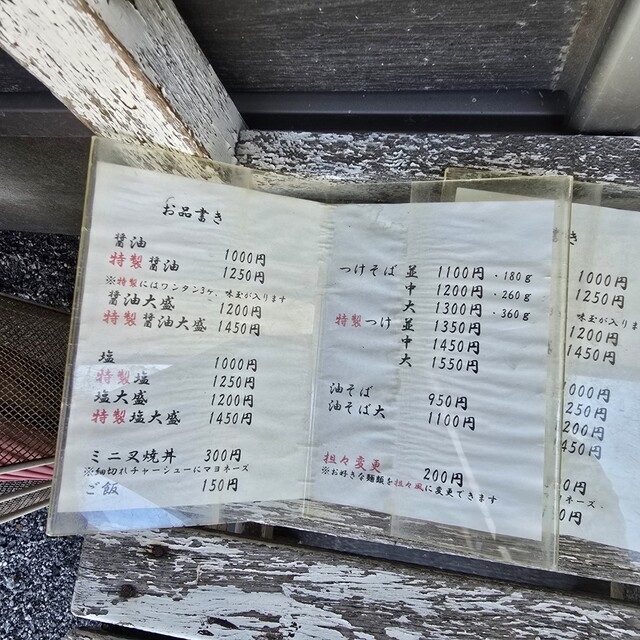 お品書き
醤油 1000円
特製醤油 1250円
※特製にはワンタン3ケ、味玉が入ります
醤油大盛 1200円
特製醤油大盛 1450円
塩 1000円
特製塩 1250円
塩大盛 1200円
特製塩大盛 1450円
ミニ叉焼丼 300円
※細切れチャーシューにマヨネーズ
ご飯 150円
つけそば 並 1100円・180g
中 1200円・260g
大 1300円・360g
特製つけ 並 1350円
中 1450円
大 1550円
油そば 950円
油そば大 1100円
担々変更 200円
※お好きな麺類を担々風に変更できます
き
1000円
1250円
味玉が入りま
1200円
1450円
000円
250円
200円
450円
0円
ネーズ
0円